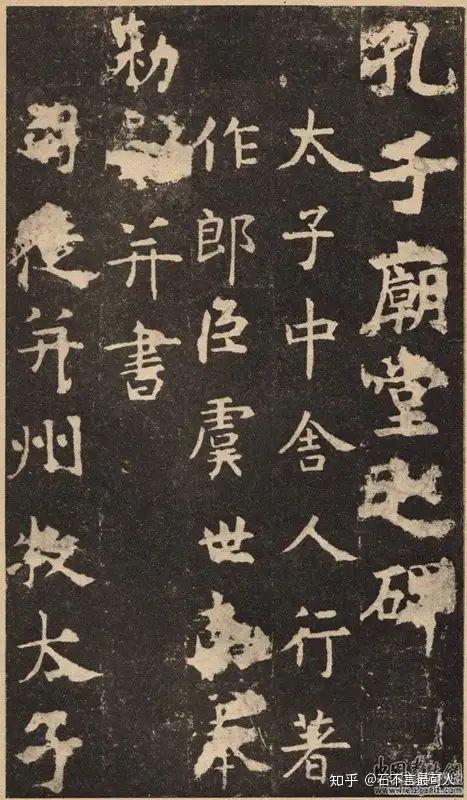 孔子廟堂之碑
太子中舍人行著
作郎臣虞世南奉
勑撰并書
司徒并州牧太子
知乎 @石不言最可人